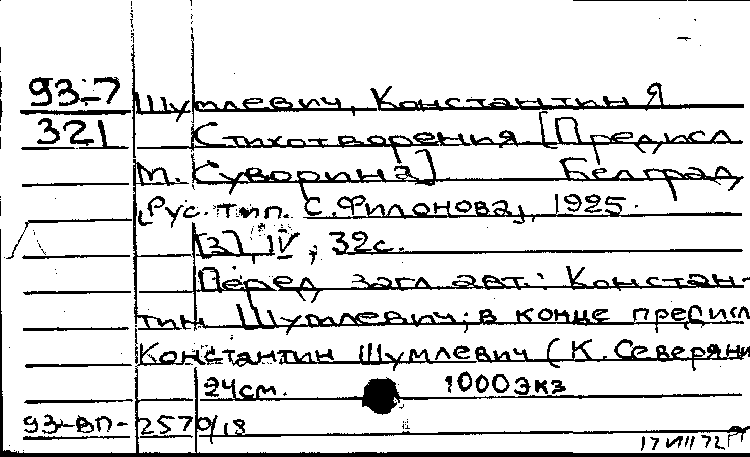 93-7 Шумлевич, Константин Я
321 Стихотворения [Предисл
М. Суворина] Белград,
"Рус. тип. С. Филонова", 1925.
[3], IV, 32с.
Перед загл. авт.: Констан-
тин Шумлевич; в конце предисл
Константин Шумлевич (К. Северяни
24см. 1000экз
93-ВП-2570/18
17 VIII 72